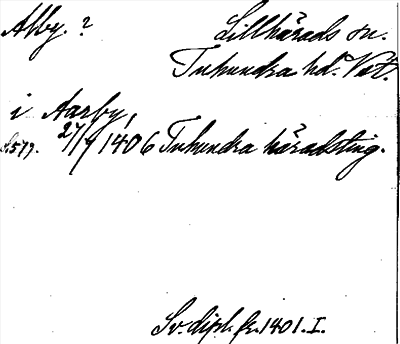 Alby. ? Lillhärads sn.
Tuhundra hd. Vstm.
i Aarby,
s. 579. 27/4 1406 Tuhundra häradsting.
Sv. dipl. fr. 1401. I.